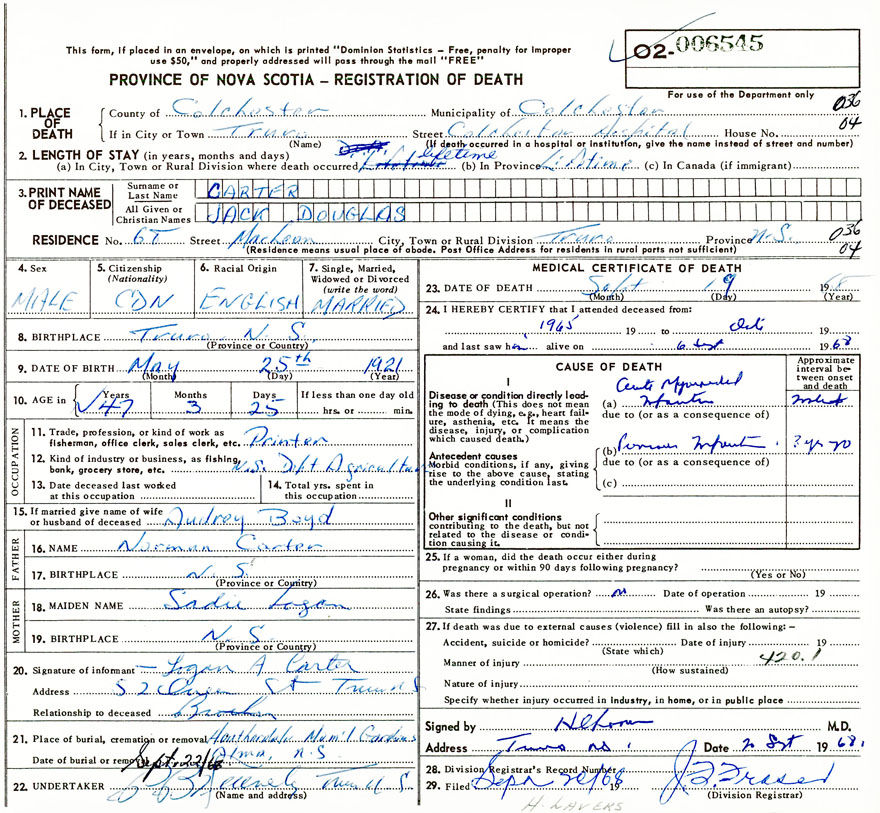 O2-006545
This form, if placed in an envelope, on which is printed "Dominion Statistics – Free, penalty for improper
use $50," and properly addressed will pass through the mail "FREE"
PROVINCE OF NOVA SCOTIA – REGISTRATION OF DEATH
For use of the Department only
036
04
1. PLACE OF DEATH
County of Colchester Municipality of Colchester
If in City or Town Truro Street Colchester Hospital House No.
(Name) (If death occurred in a hospital or institution, give the name instead of street and number)
2. LENGTH OF STAY (in years, months and days)
(a) In City, Town or Rural Division where death occurred lifetime (b) In Province Lifetime (c) In Canada (if immigrant)
3. PRINT NAME OF DECEASED
Surname or Last Name CARTER
All Given or Christian Names JACK DOUGLAS
RESIDENCE No. Street City, Town or Rural Division Truro Province N.S.
(Residence means usual place of abode. Post Office Address for residents in rural parts not sufficient)
036
04
4. Sex
MALE
5. Citizenship (Nationality)
CDN
6. Racial Origin
ENGLISH
7. Single, Married, Widowed or Divorced (write the word)
MARRIED
8. BIRTHPLACE Truro N.S.
(Province or Country)
9. DATE OF BIRTH May 25th 1921
(Month) (Day) (Year)
10. AGE in Years 47 Months 3 Days 25 If less than one day old hrs. or min.
OCCUPATION
11. Trade, profession, or kind of work as fisherman, office clerk, sales clerk, etc. Printer
12. Kind of industry or business, as fishing, bank, grocery store, etc. N.S. Dept Agriculture
13. Date deceased last worked at this occupation
14. Total yrs. spent in this occupation
15. If married give name of wife or husband of deceased Audrey Boyd
FATHER
16. NAME Norman Carter
17. BIRTHPLACE N.S.
(Province or Country)
MOTHER
18. MAIDEN NAME Sadie Logan
19. BIRTHPLACE N.S.
(Province or Country)
20. Signature of informant – Logan A Carter
Address 52 Queen St Truro NS
Relationship to deceased Brother
21. Place of burial, cremation or removal Mem'l Gardens
Alma, N.S
Date of burial or removal Sept. 22/68
22. UNDERTAKER
(Name and address)
MEDICAL CERTIFICATE OF DEATH
23. DATE OF DEATH Sept 19 1968
(Month) (Day) (Year)
24. I HEREBY CERTIFY that I attended deceased from:
1965 19 to date 19
and last saw him alive on Sept 1968
CAUSE OF DEATH
Approximate interval between onset and death
I
Disease or condition directly leading to death (This does not mean the mode of dying, e.g., heart failure, asthenia, etc. It means the disease, injury, or complication which caused death.)
(a) Acute Myocardial
Infarction
due to (or as a consequence of)
Antecedent causes
Morbid conditions, if any, giving rise to the above cause, stating the underlying condition last.
(b) Previous Infarction 3 yrs ago
due to (or as a consequence of)
(c)
II
Other significant conditions contributing to the death, but not related to the disease or condition causing it.
25. If a woman, did the death occur either during pregnancy or within 90 days following pregnancy?
(Yes or No)
26. Was there a surgical operation? no Date of operation 19
State findings Was there an autopsy?
27. If death was due to external causes (violence) fill in also the following: –
Accident, suicide or homicide? Date of injury 19
(State which)
420.1
Manner of injury
(How sustained)
Nature of injury
Specify whether injury occurred in industry, in home, or in public place
Signed by M.D.
Address Truro NS Date 20 Sept 1968
28. Division Registrar's Record Number
29. Filed Sept 20/68 19 J. B. Fraser
(Division Registrar)
H. LAVERS